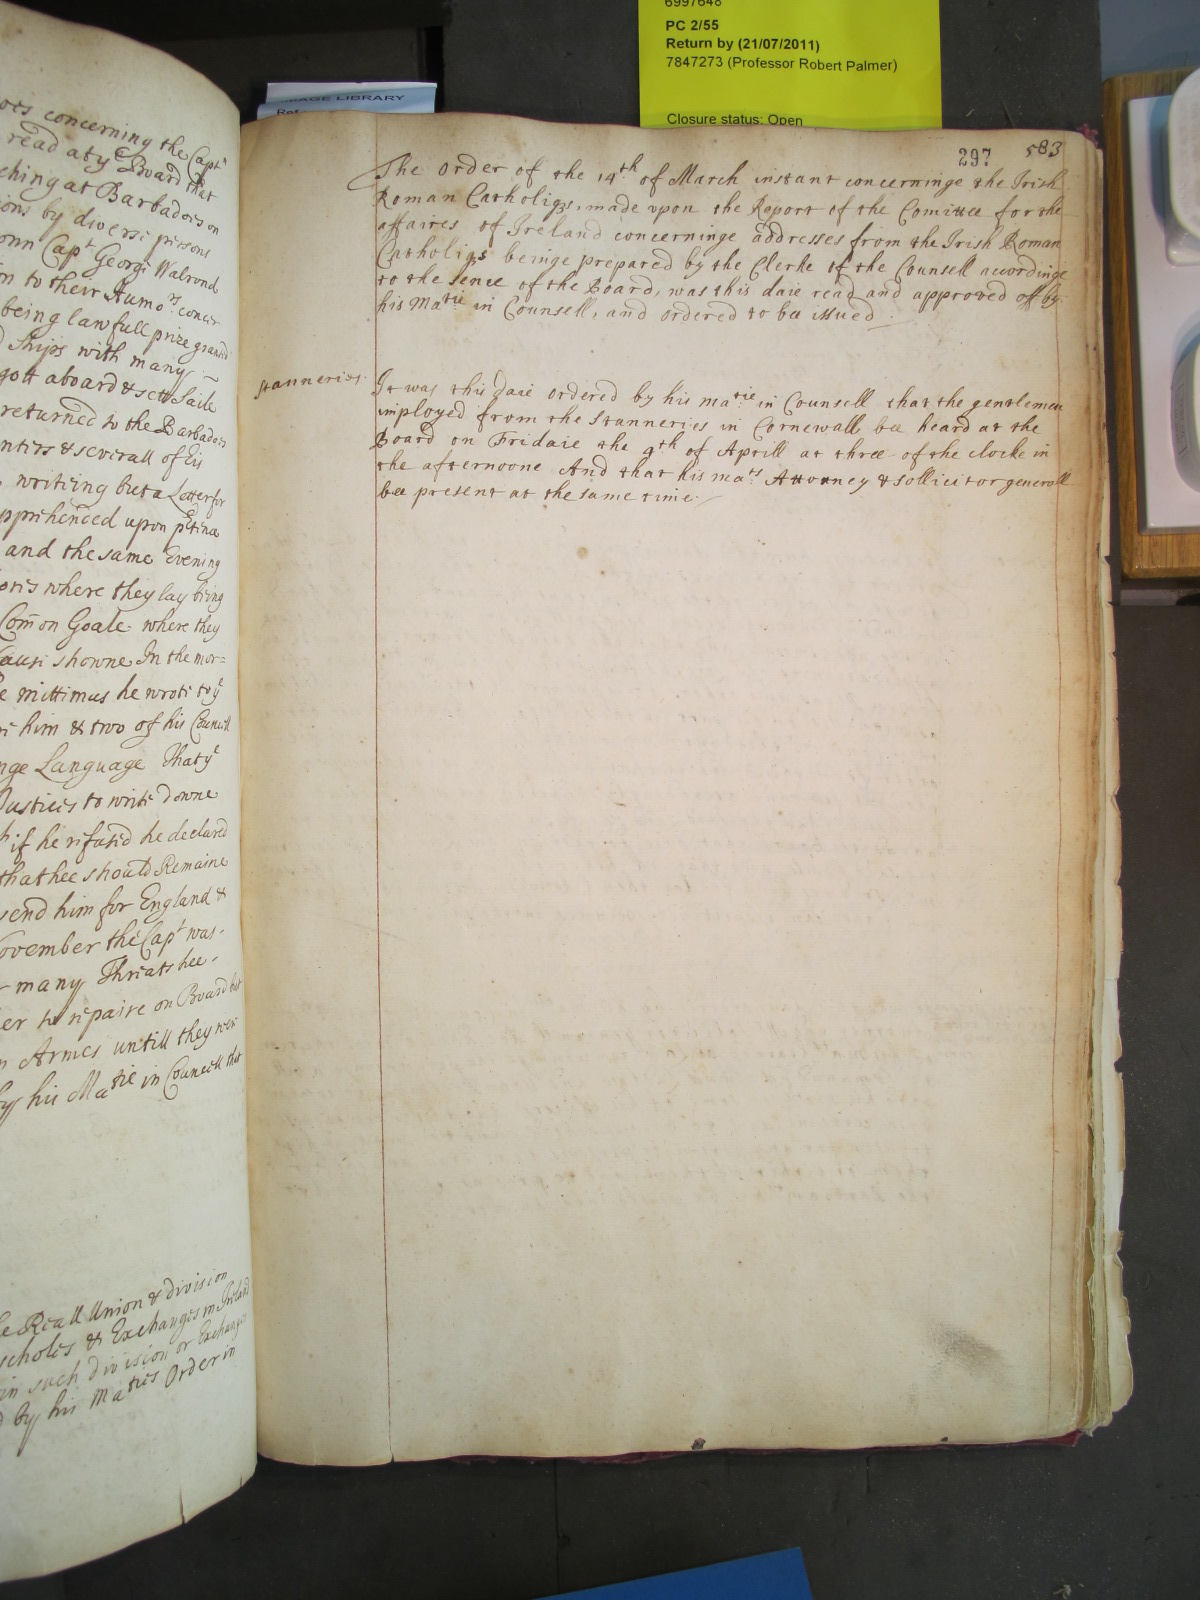 6997648
PC 2/55
Return by (21/07/2011)
7847273 (Professor Robert Palmer)
Closure status: Open
LIBRARY
ors concerning the Capt
read at ye Board that
ching at Barbadoes on
ons by divers persons
Capt George Walrond
n to their
being lawfull prize
Ships with many
gott aboard & sett Saile
returned to the Barbados
& severall of
writing but a Letter for
upon
and the same Evening
where they lay being
Com̄on Goale where they
showne In the mor=
mittimus he wrote to ye
him & two of his Councill
nge Language That ye
Justices to write downe
if he refused he declared
that hee should Remaine
send him for England &
ovember the Capt was
many Threats hee
er to repaire on Board but
n Armes untill they were
by his Matie in Councill that
e Reall Union & division
& Exchanges in Ireland
in such division or Exchange
by his Maties Order in
297 583
The Order of the 14th of March instant concerninge the Irish
Roman Catholiqs, made vpon the Report of the Comittee for the
affaires of Ireland concerninge addresses from the Irish Roman
Catholiqs beinge prepared by the Clerke of the Counsell accordinge
to the sence of the Board, was this daie read and approved off by
his Matie in Counsell, and ordered to bee issued
Stanneries
It was this daie ordered by his matie in Counsell that the gentlemen
imployed from the Stanneries in Cornewall bee heard at the
Board on Fridaie the 9th of Aprill at three of the clocke in
the afternoone And that his mats Attorney & Sollicitor generall
bee present at the same time